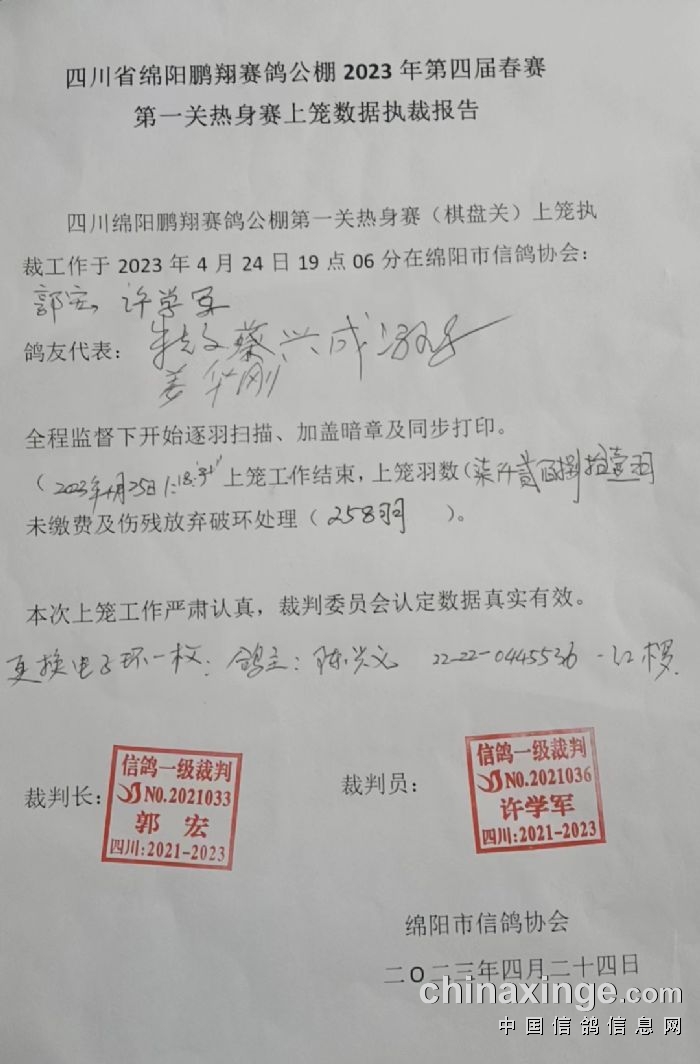 四川省绵阳鹏翔赛鸽公棚 2023 年第四届春赛
第一关热身赛上笼数据执裁报告
四川绵阳鹏翔赛鸽公棚第一关热身赛（棋盘关）上笼执
裁工作于 2023 年 4 月 24 日 19 点 06 分在绵阳市信鸽协会：
郭宏 许学军
鸽友代表： 蔡兴成
姜华刚
全程监督下开始逐羽扫描、加盖暗章及同步打印。
（2023年4月25日 上笼工作结束，上笼羽数（柒仟贰百捌拾壹羽
未缴费及伤残放弃破环处理（258羽 ）。
本次上笼工作严肃认真，裁判委员会认定数据真实有效。
更换电子环一枚：鸽主：陈兴文 22-22-0445536
裁判长： 裁判员：
信鸽一级裁判
NO.2021033
郭 宏
四川:2021-2023
信鸽一级裁判
NO.2021036
许学军
四川:2021-2023
绵阳市信鸽协会
二O二三年四月二十四日
chinaxinge.com
中国信鸽信息网